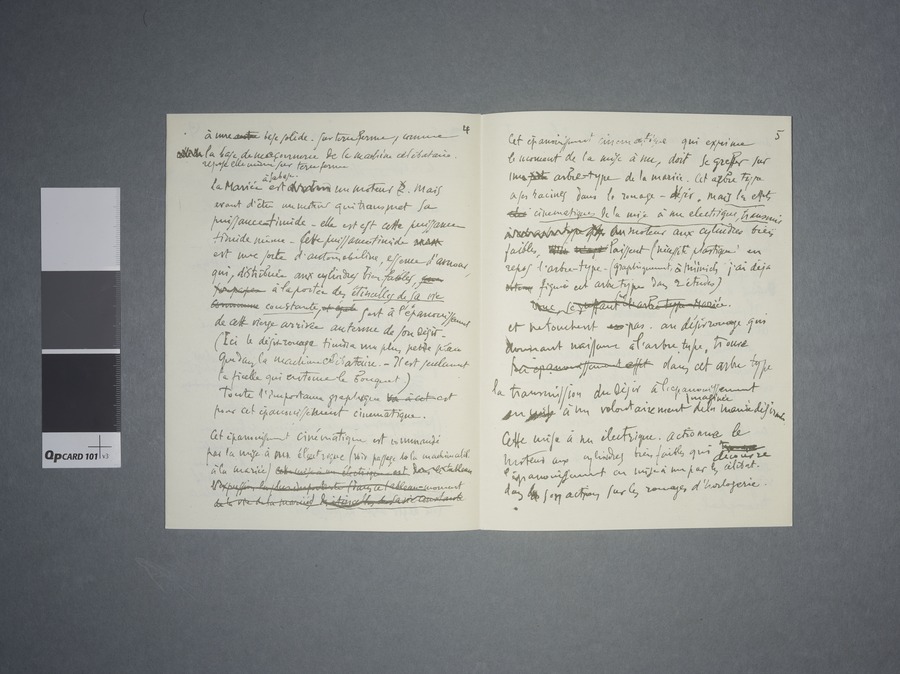 4
à une base solide. sur terre ferme, comme
la base de maçonnerie de la machine célibataire.
repose elle même sur terre ferme
à sa base
La Mariée est un moteur. Mais
avant d'être un moteur qui transmet sa
puissance timide - elle est cette puissance
timide même - Cette puissance timide
est une sorte d'automobiline, essence d'amour,
qui, distribuée aux cylindres bien faibles,
à la portée des étincelles de sa vie
constante, sert à l'épanouissement
de cette vierge arrivée au terme de son désir -
(Ici le désir-rouage tiendra une plus petite place
que dans la machine célibataire. - Il est seulement
la ficelle qui entoure le bouquet)
Toute l'importance graphique est
pour cet épanouissement cinématique.
Cet épanouissement cinématique est commandé
par la mise à nu électrique (voir passage de la machine célib
à la mariée)
L'expression la plus importante dans ce tableau moment
de la vie de la mariée
5
Cet épanouissement cinématique qui exprime
le moment de la mise à nu, doit se greffer sur
un arbre-type de la mariée. Cet arbre type
a ses racines dans le rouage-désir. Mais les effets
cinématiques de la mise à nu électrique, transmis
au moteur aux cylindres bien
faibles, laissent (nécessité plastique) au
repos l'arbre-type - (graphiquement, à Münich j'ai déjà
figuré cet arbre type dans 2 études)
et ne touchent pas au désir-rouage qui
donnant naissance à l'arbre-type, trouve
dans cet arbre type
la transmission du désir à l'épanouissement
en mise à nu volontairement imaginée de la mariée désirante.
Cette mise à nu électrique actionne le
moteur aux cylindres bien faibles qui découvre
l'épanouissement en mise à nu par les célibat.
dans son action sur les rouages d'horlogerie.
QPCARD 101 v3